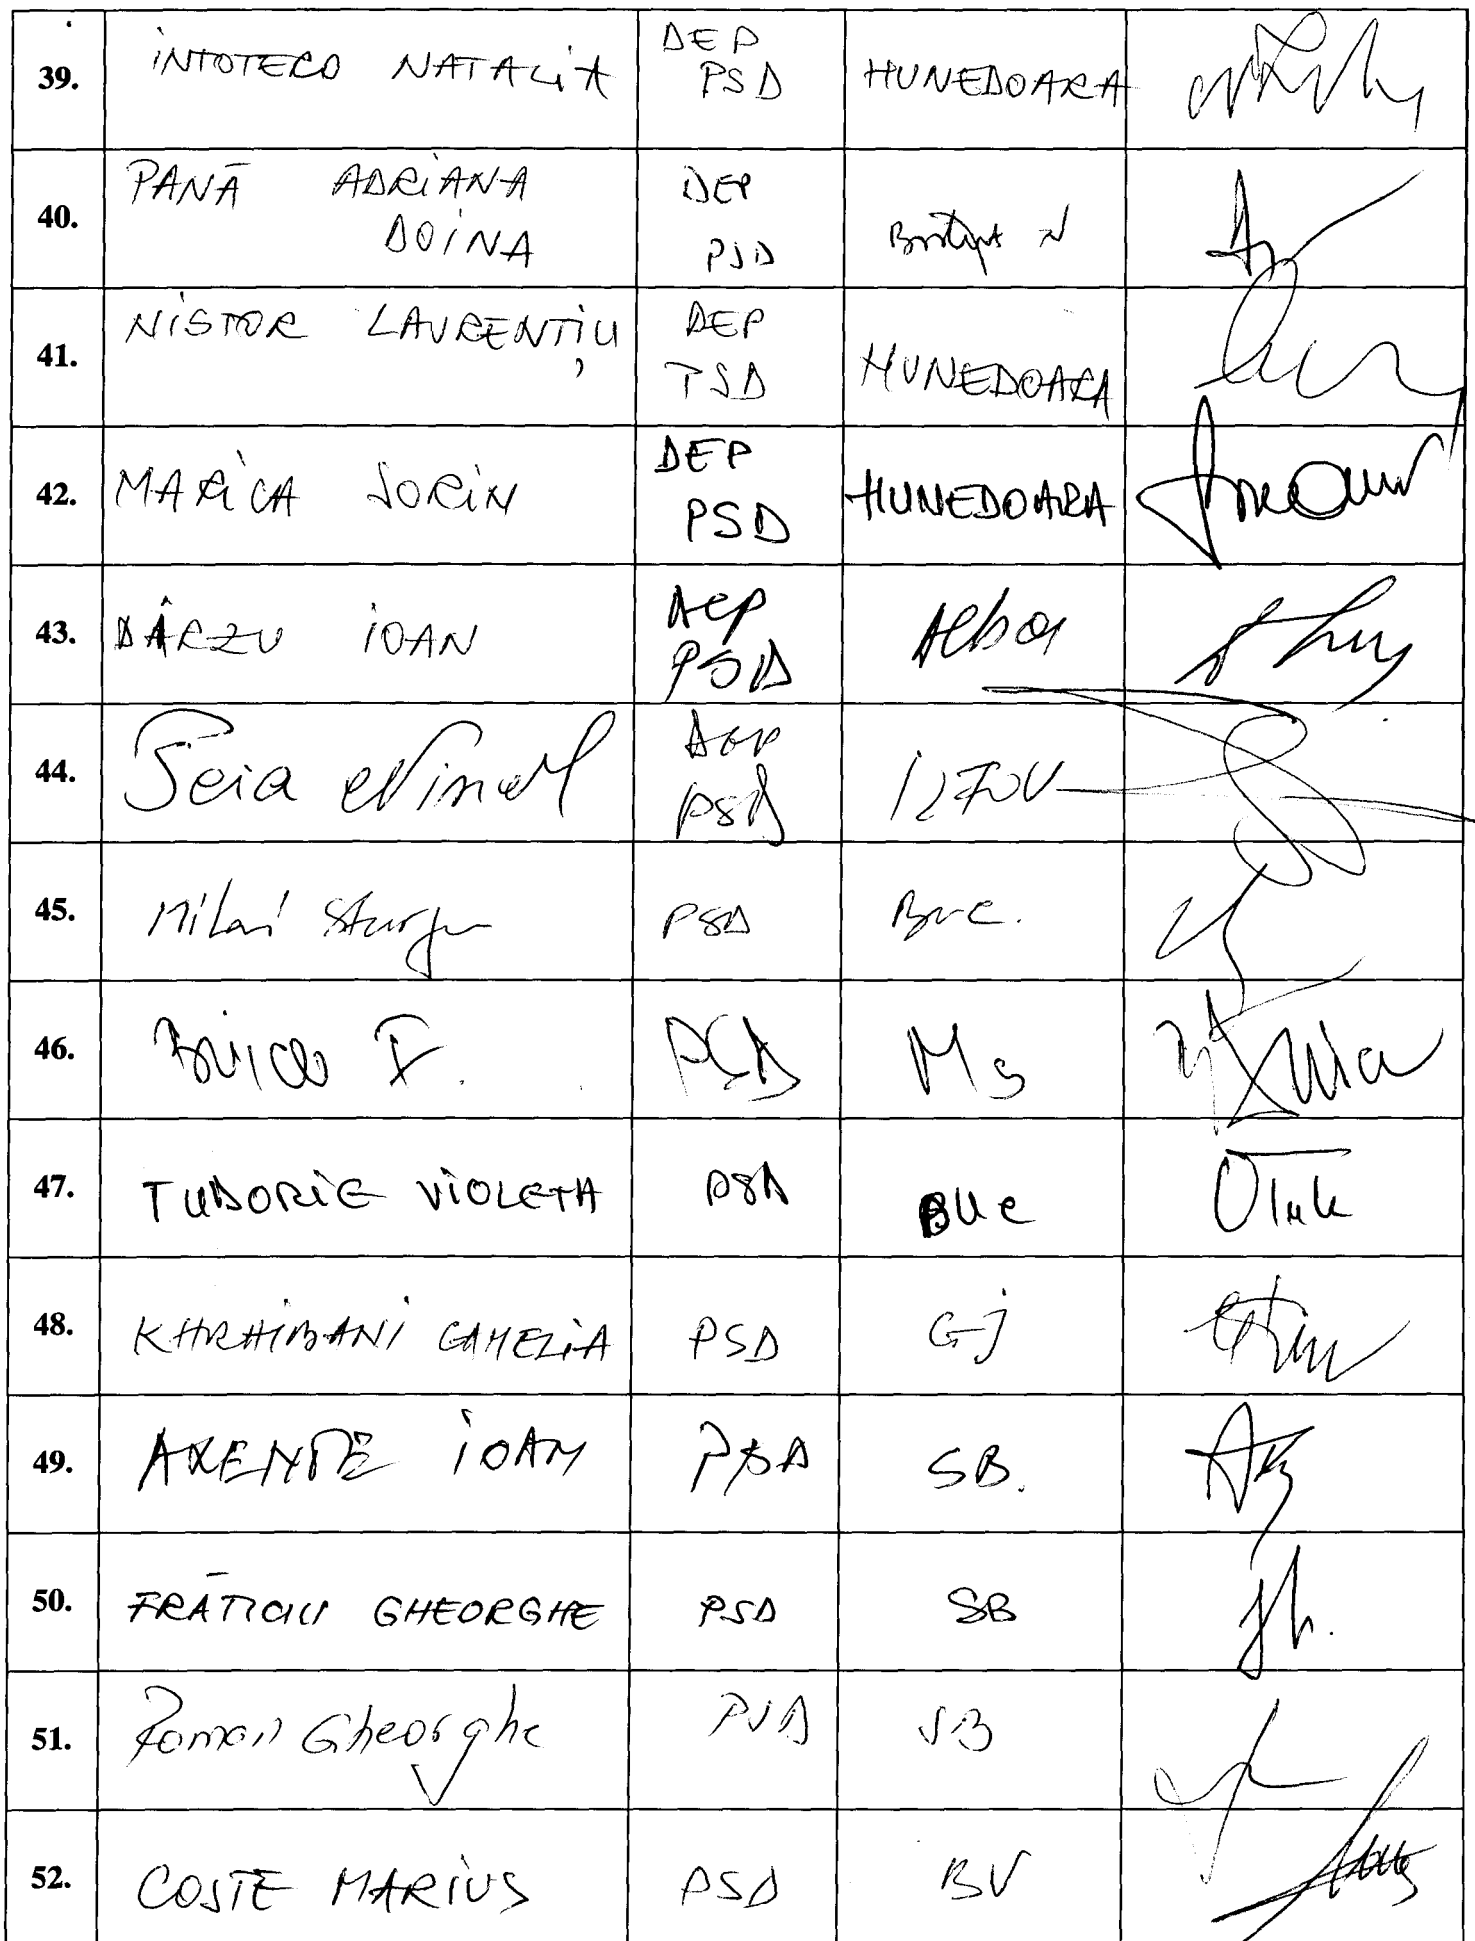 39. INTOTERO NATALIA DEP PSD HUNEDOARA
40. PANĂ ADRIANA DOINA DEP PSD
41. NISTOR LAURENȚIU DEP PSD HUNEDOARA
42. MARICA SORIN DEP PSD HUNEDOARA
43. DÂRZU IOAN DEP PSD Alba
44. Peia Ninel DEP PSD ILFOV
45. Mihai Sturzu PSD Buc.
46. PSD Ms
47. TUDORIE VIOLETA PSD BUC
48. KHRAIBANI CAMELIA PSD GJ
49. AXENTE IOAN PSD SB.
50. FRĂTICIU GHEORGHE PSD SB
51. Roman Gheorghe PSD SB
52. COSTE MARIUS PSD BV